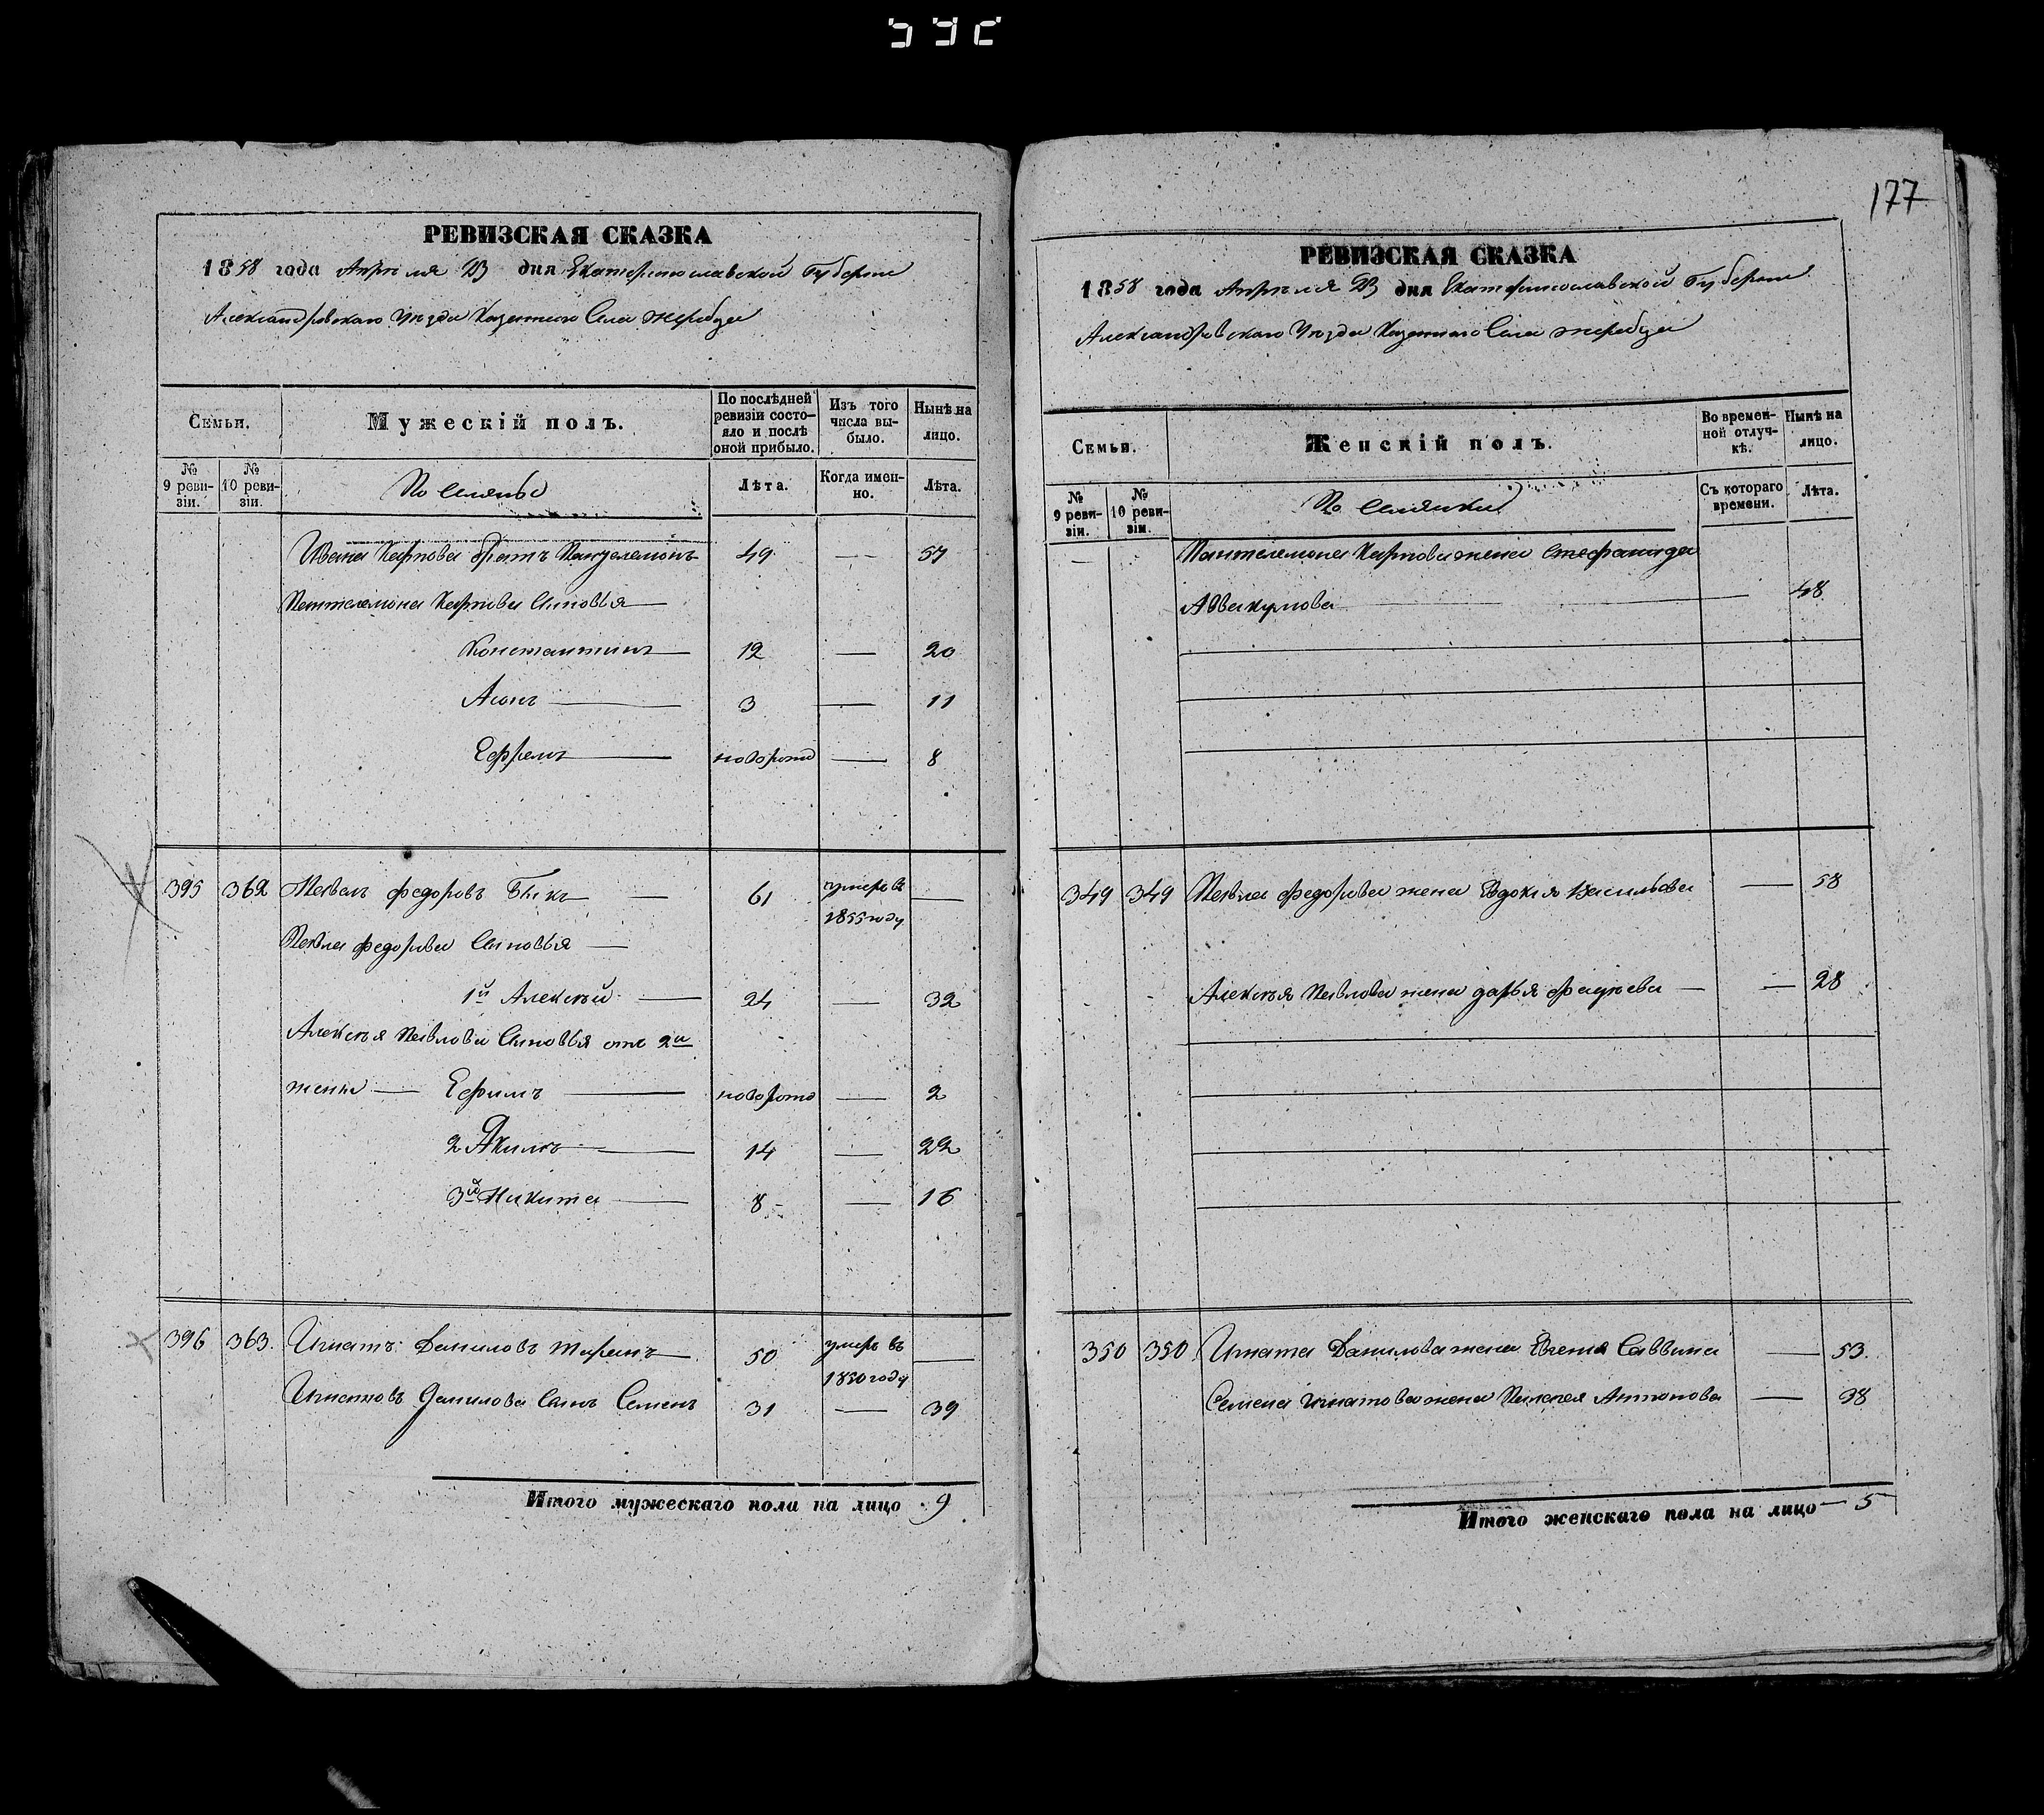 177
РЕВИЗСКАЯ СКАЗКА
1858 года Апреля дня Екатеринославской Губернии
Александровскаго Уезда Казеннаго Села Жеребца
Семьи.
Мужескій полъ.
По послѣдней ревизіи состояло и послѣ оной прибыло.
Изъ того числа выбыло.
Нынѣ на лицо.
№ 9 ревизіи.
№ 10 ревизіи.
Лѣта.
Когда именно.
Лѣта.
Ивана Карпова братъ Пантелемонъ 49 — 57
Пантелемона Карпова Сыновья —
Константинъ — 12 — 20
3 — 11
Ефремъ — новорожд — 8
395 362 Павелъ Федоровъ Быкъ — 61 умеръ въ —
1855 году
Павла Федорова Сыновья —
1й Алексѣй — 24 — 32
Алексѣя Павлова Сыновья отъ 2й
жены — Ефимъ — новорожд — 2
2 Акимъ — 14 — 22
3й Никита — 8 — 16
396 363. Игнатъ Даниловъ Таранъ 50 умеръ въ —
1850 году
Игнатовъ Данилова Сынъ Семенъ 31 — 39
Итого мужескаго пола на лицо 9
РЕВИЗСКАЯ СКАЗКА
1858 года Апреля дня Екатеринославской Губернии
Александровскаго Уезда Казеннаго Села Жеребца
Семьи.
Женскій полъ.
Во временной отлучкѣ.
Нынѣ на лицо.
№ 9 ревизіи.
№ 10 ревизіи.
Съ котораго времени.
Лѣта.
Пантелемона Карпова жена Стефанида
Аввакумова — 48
349 349 Павла Федорова жена Евдокія Васильева — 58
Алексѣя Павлова жена Дарья Фадѣева — 28
350 350 Игната Данилова жена Евгенія Саввина — 53.
Семена Игнатова жена Пелагея Антонова — 38
Итого женскаго пола на лицо — 5